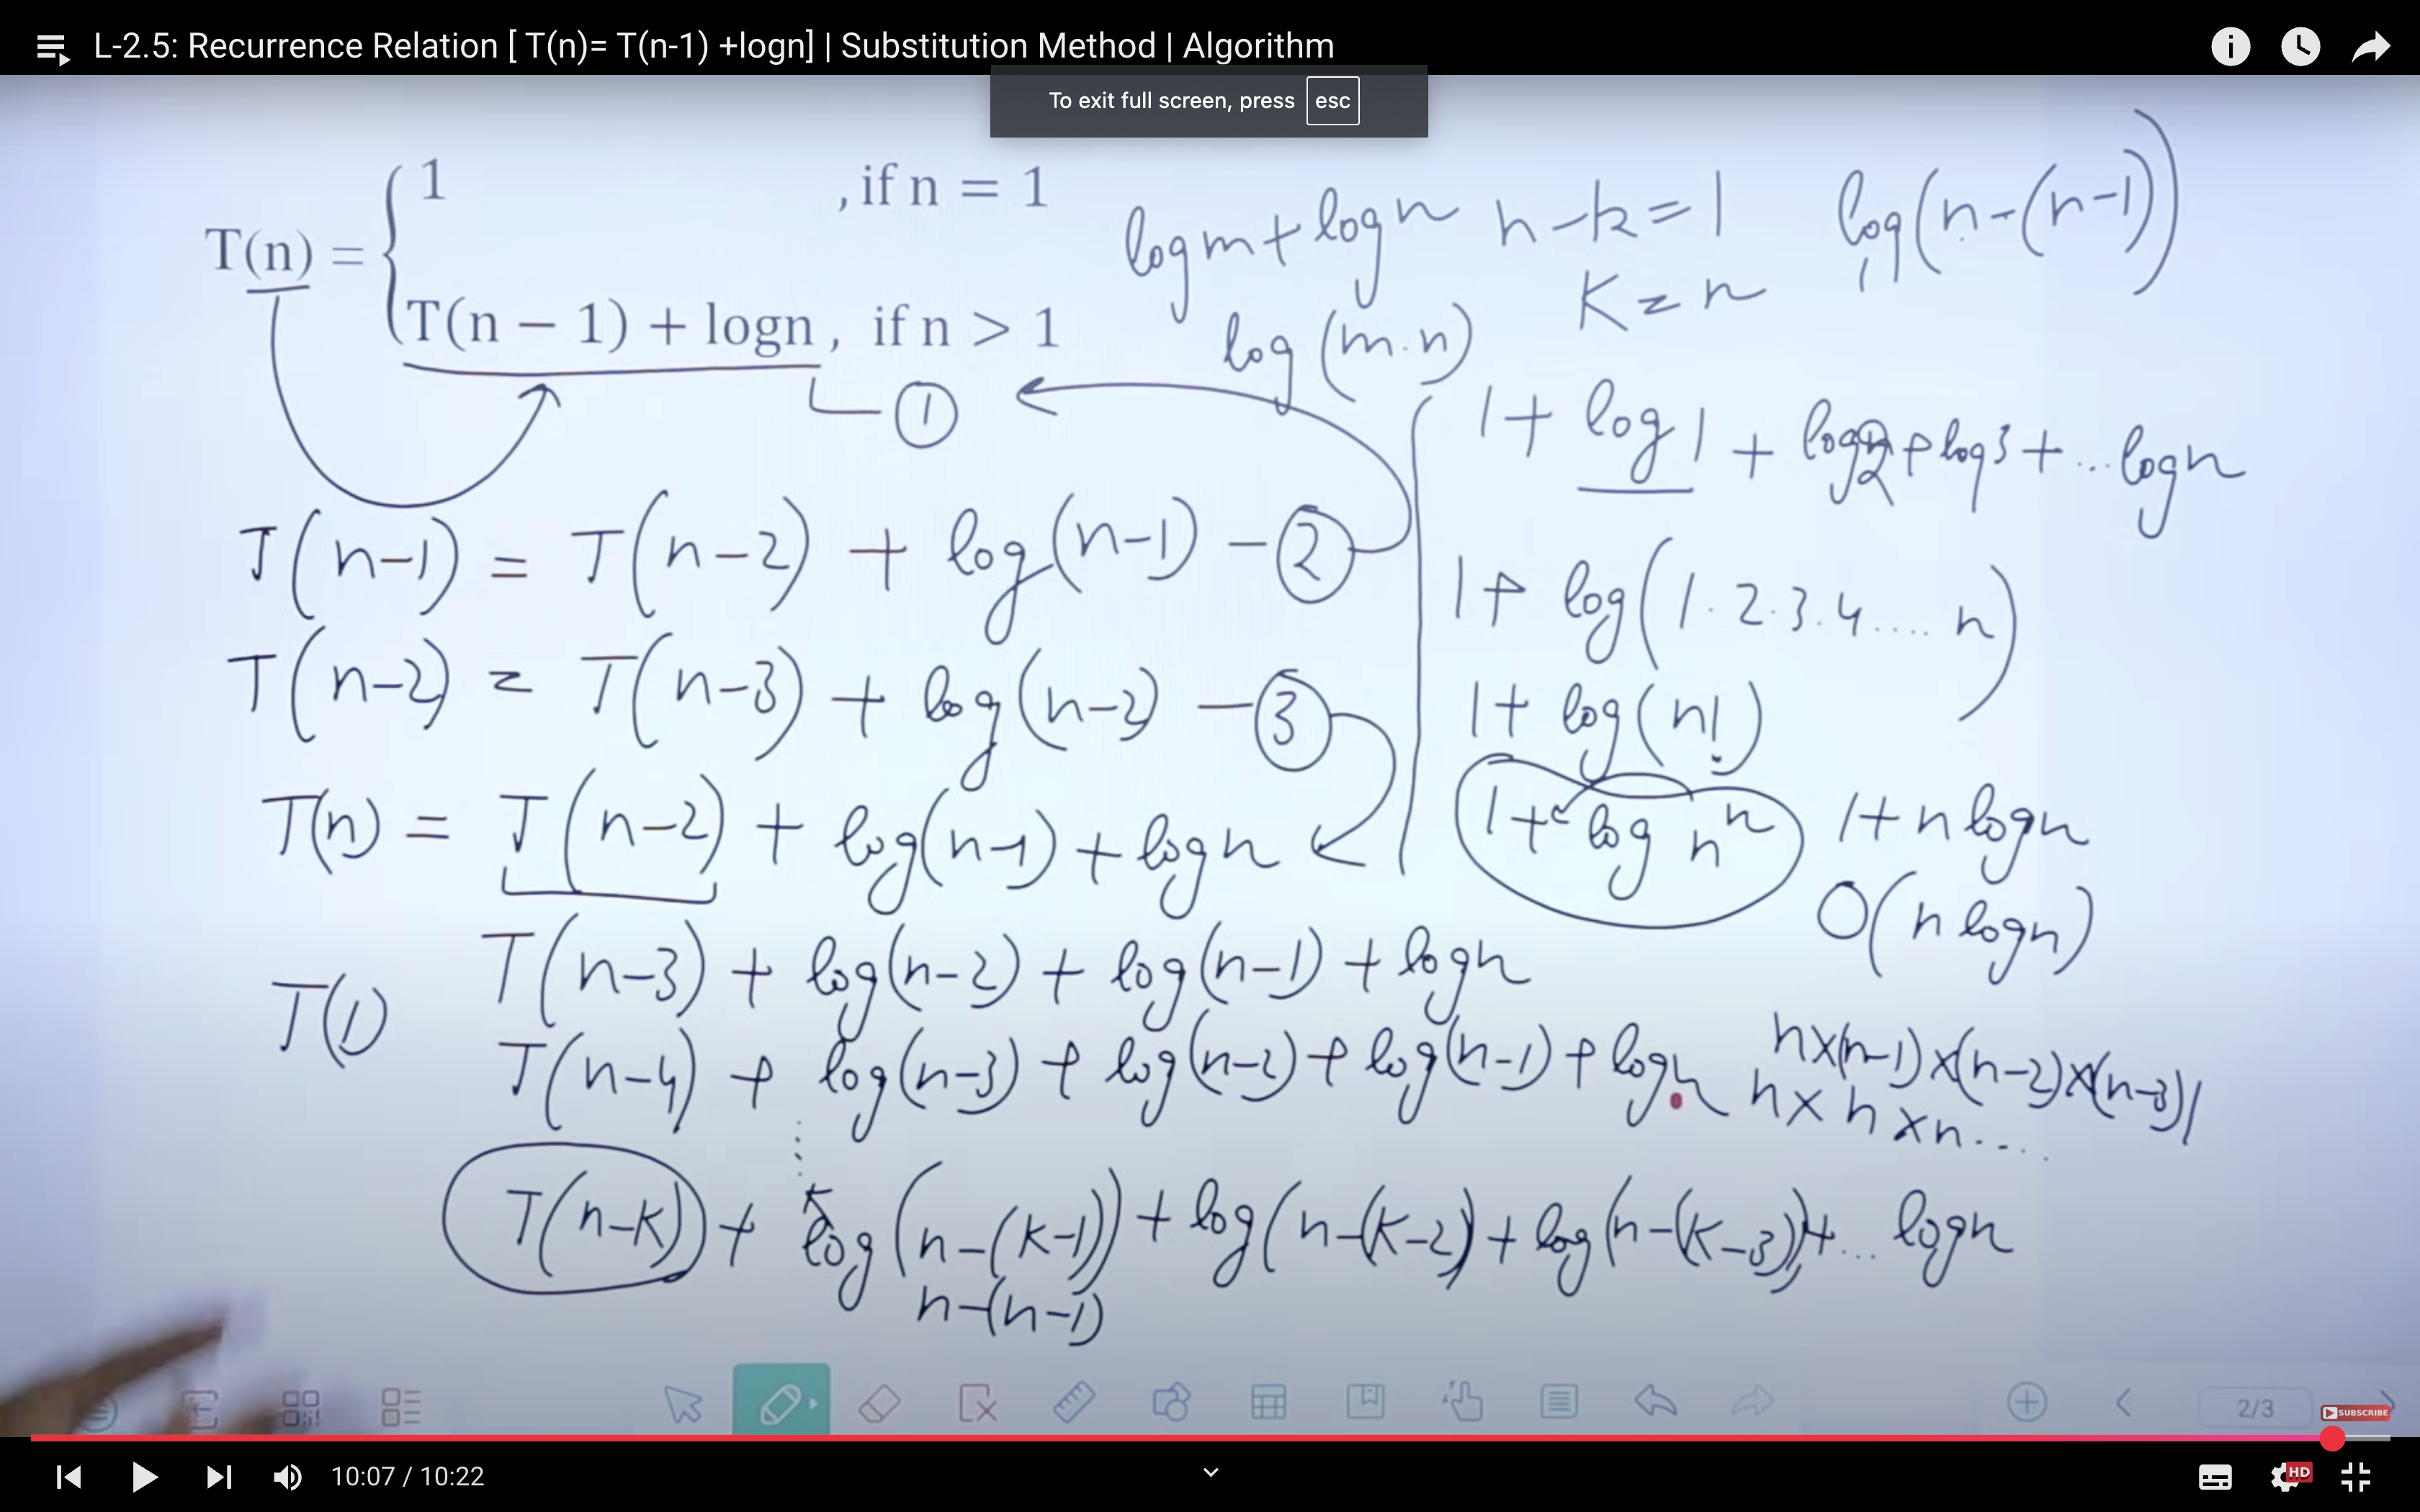 L-2.5: Recurrence Relation [ T(n)= T(n-1) +logn] | Substitution Method | Algorithm
To exit full screen, press esc
T(n) = { 1 , if n = 1
T(n − 1) + logn , if n > 1
①
log m + log n
log (m·n)
n-k=1
K=n
log(n-(n-1))
T(n-1) = T(n-2) + log(n-1) - ②
T(n-2) = T(n-3) + log(n-2) - ③
T(n) = T(n-2) + log(n-1) + log n
T(n-3) + log(n-2) + log(n-1) + log n
T(1)
T(n-4) + log(n-3) + log(n-2) + log(n-1) + log n
T(n-K) + log(n-(K-1)) + log(n-(K-2)) + log(n-(K-3)) + ... log n
n-(n-1)
1 + log 1 + log 2 + log 3 + ... log n
1 + log(1·2·3·4.... n)
1 + log(n!)
1 + log nⁿ
1 + n log n
O(n log n)
n×(n-1)×(n-2)×(n-3)
n×n×n....
2/3
SUBSCRIBE
10:07 / 10:22
HD